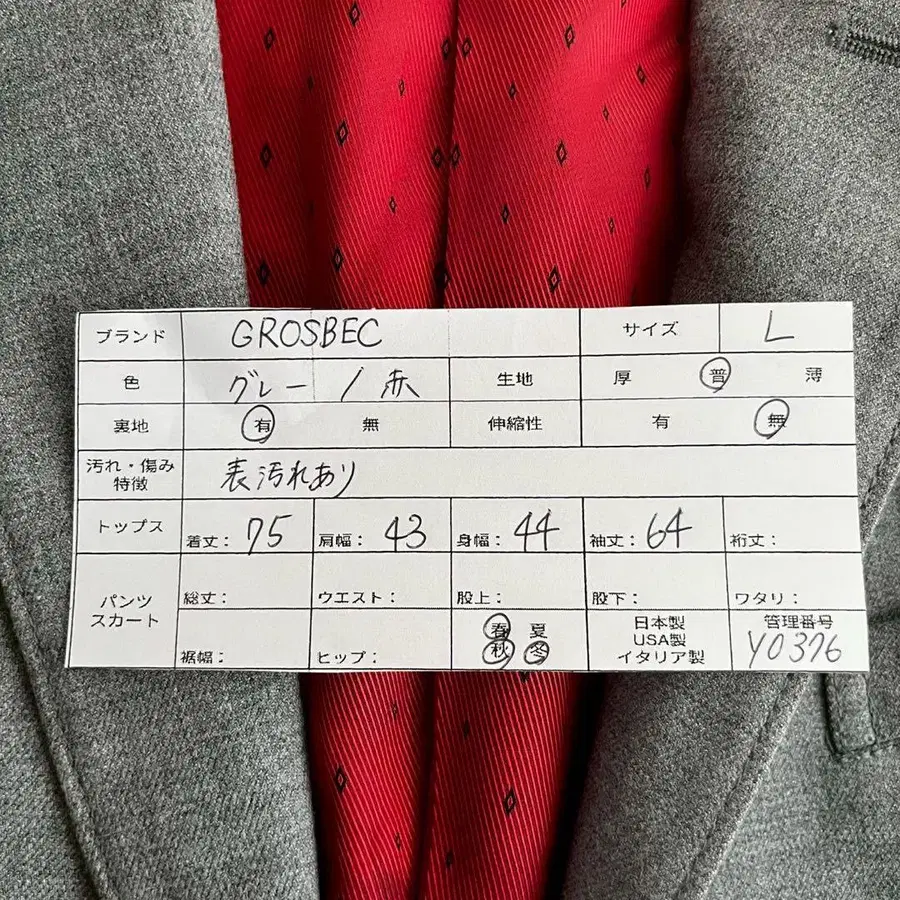 ブランド GROSBEC サイズ L
色 グレー / 赤 生地 厚 普 薄
裏地 有 無 伸縮性 有 無
汚れ・傷み
特徴 表汚れあり
トップス 着丈: 75 肩幅: 43 身幅: 44 袖丈: 64 裄丈:
パンツ
スカート
総丈: ウエスト: 股上: 股下: ワタリ:
裾幅: ヒップ:
春 夏
秋 冬
日本製
USA製
イタリア製
管理番号
Y0376